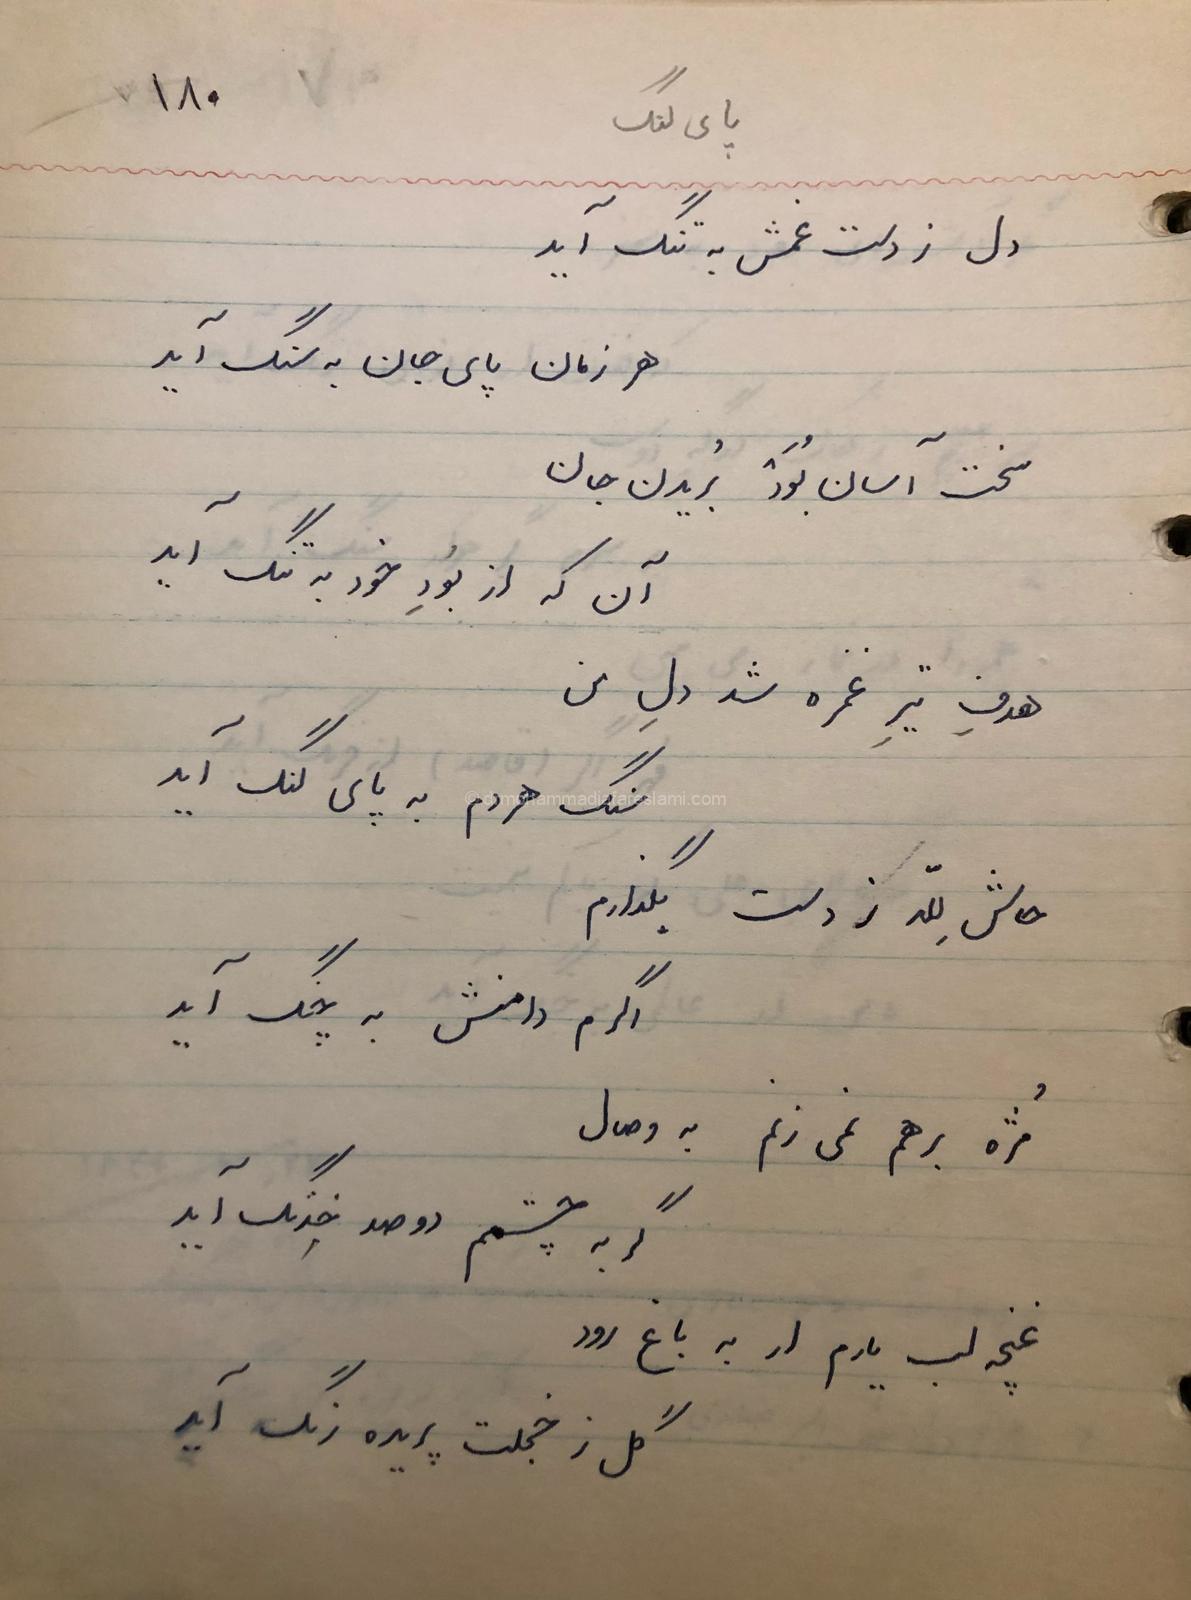 ۱۸۰
پای لنگ
دل ز دست غمش به تنگ آید
هر زمان پای جان به سنگ آید
سخت آسان بُوَد بُریدن جان
آن که از بُودِ خود به تنگ آید
هدفِ تیرِ غمزه شد دلِ من
سنگ هردم به پای لنگ آید
حاش لِلّه ز دست بگذارم
اگرم دامنش به چنگ آید
مُژه برهم نمی زنم به وصال
گر به چشمم دوصد خَدَنگ آید
غنچه لب یارم ار به باغ رود
گل ز خجلت پریده رنگ آید